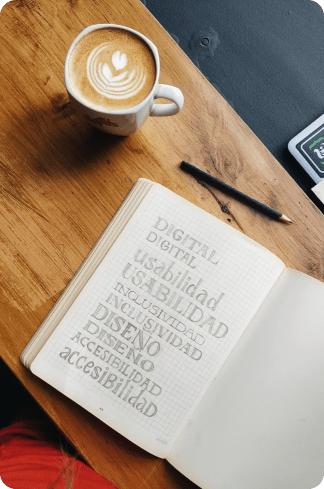 DIGITAL
DIGITAL
usabilidad
USABILIDAD
INCLUSIVIDAD
INCLUSIVIDAD
DISEÑO
DISEÑO
ACCESIBILIDAD
accesiBilidaD